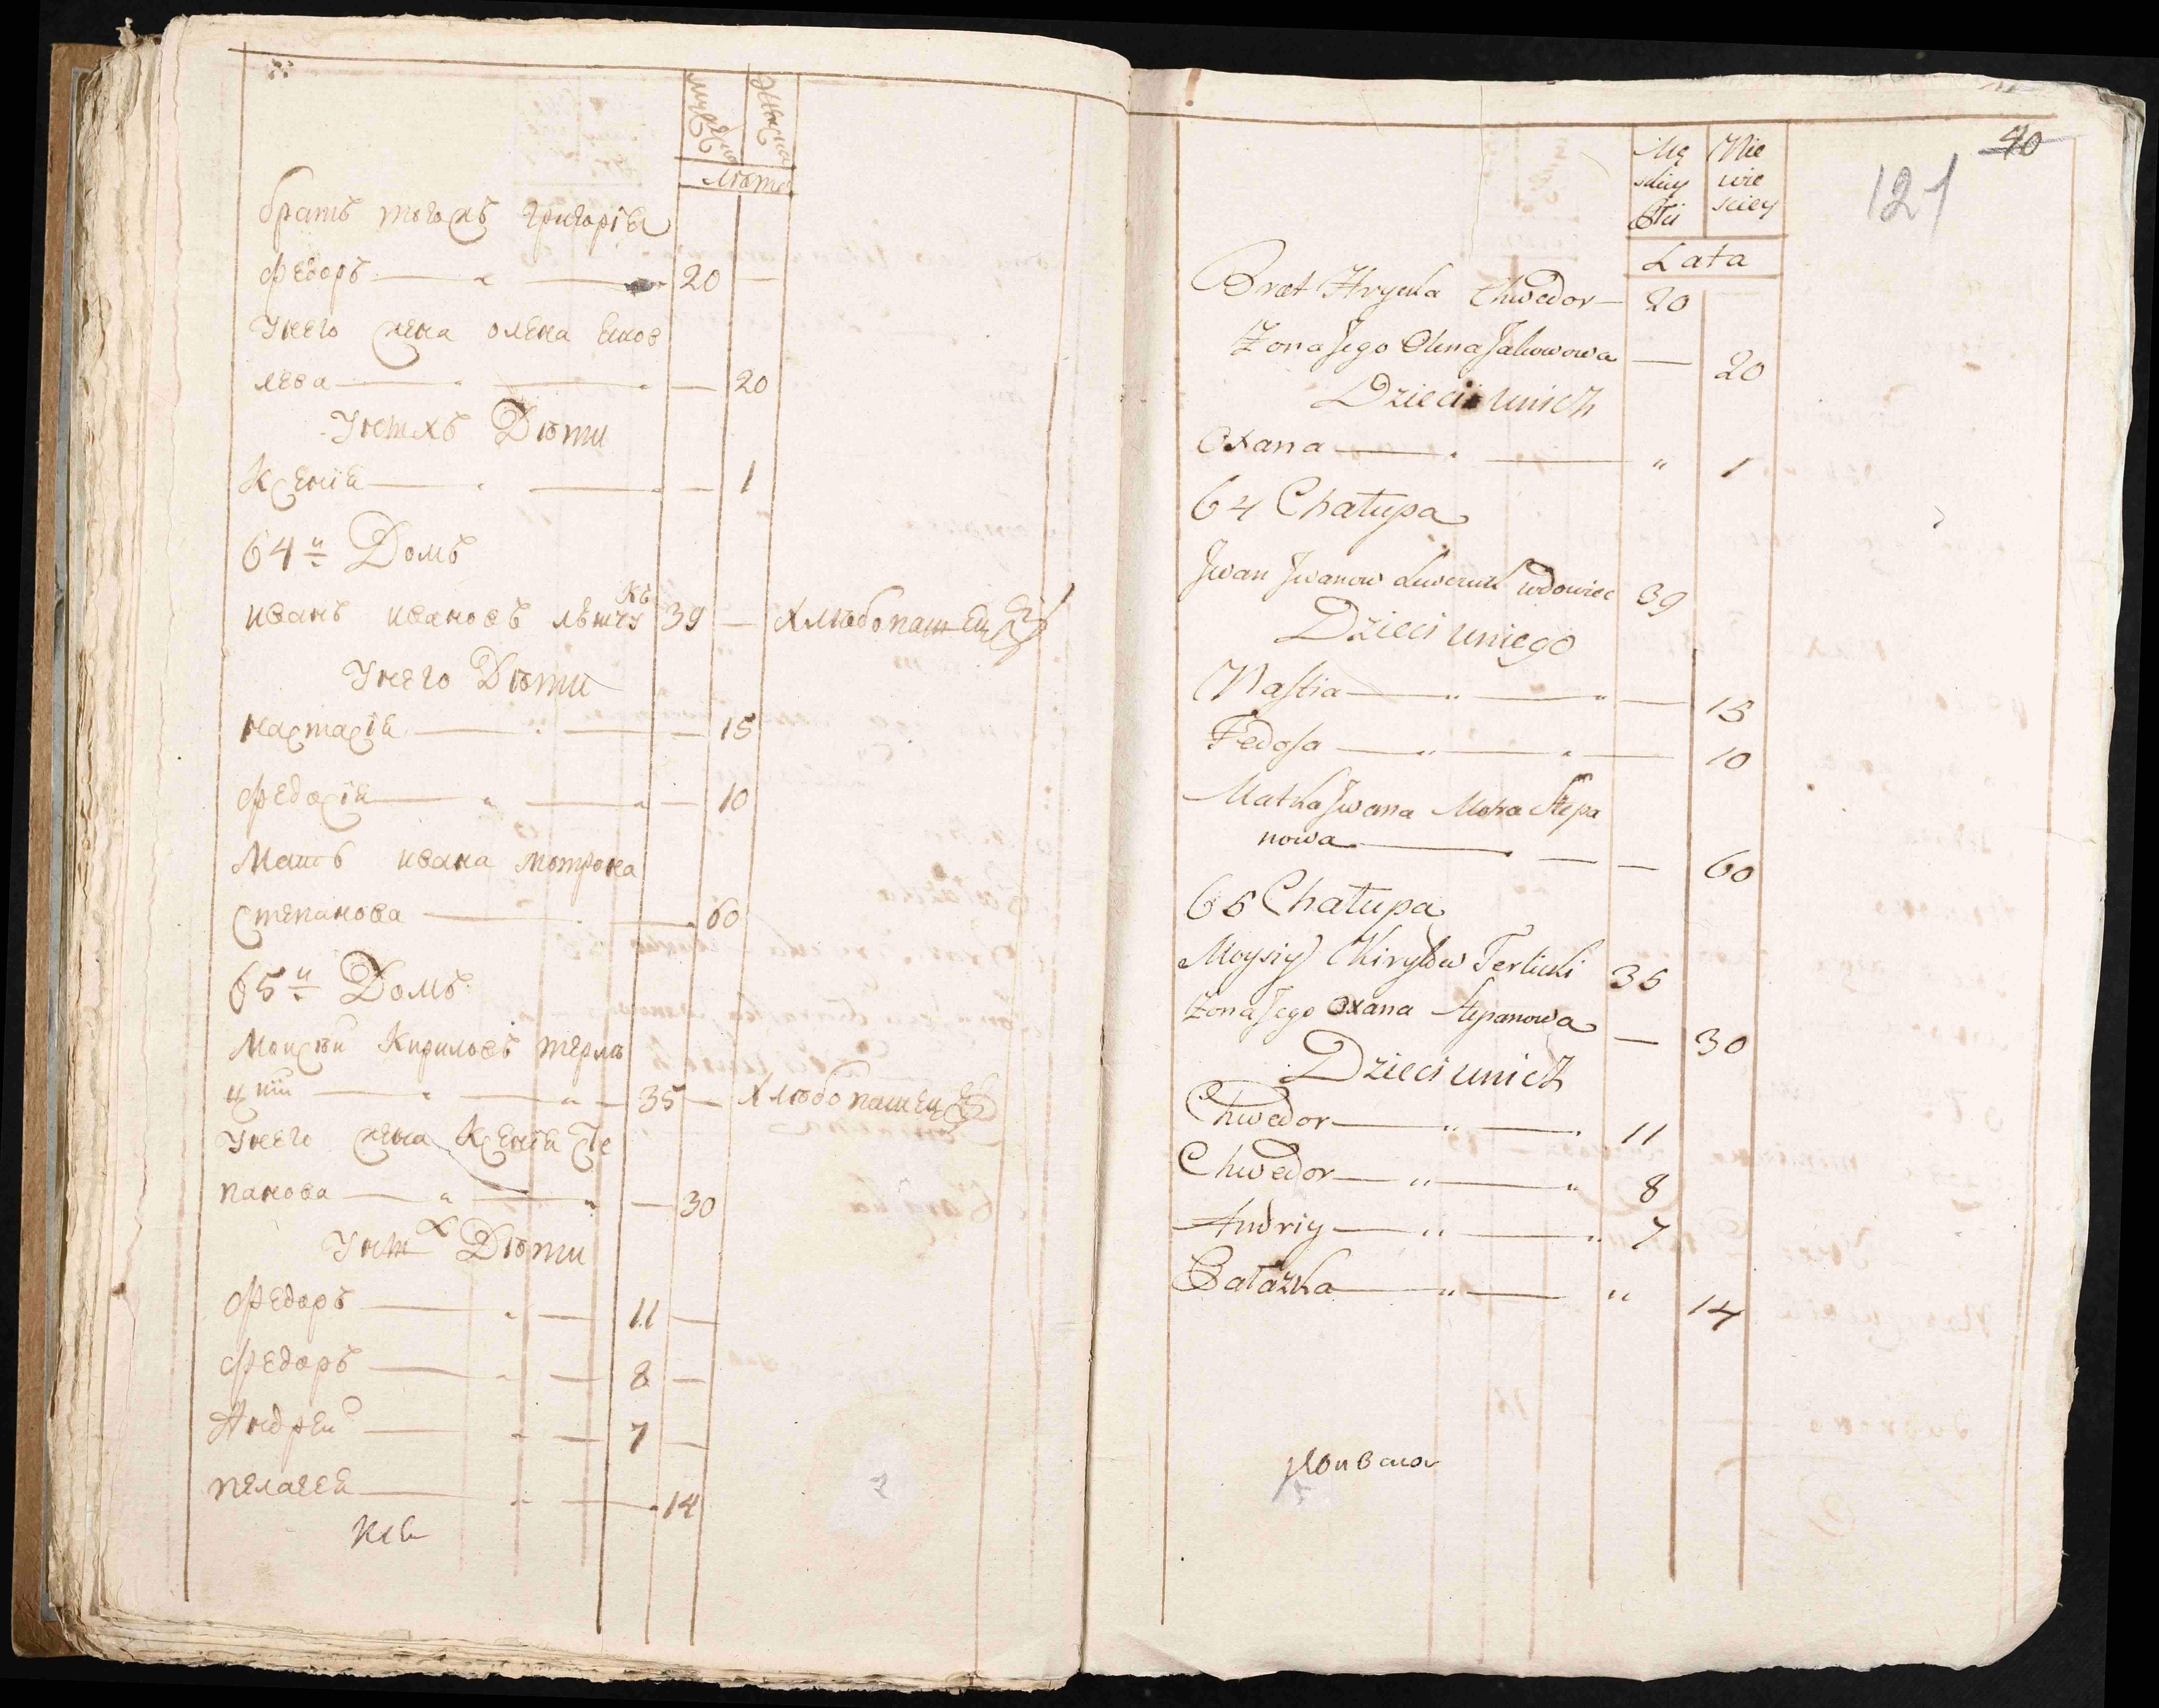 мужеска
женска
лѣта
братъ тогожъ григорія
федоръ — „ — 20 —
Унего жена олена яков
лева — „ — „ — 20
Унихъ Дѣти
Ксенія — „ — „ — 1
64й Домъ
иванъ ивановъ левчукъ 39 — Хлѣбопашецъ
Унего Дѣти
настасія — „ — — 15
федосія — „ — „ — 10
Мать ивана мотрона
степанова — „ — 60
65й Домъ
Моисѣй Кириловъ терлѣ
цкій — „ — „ — 35 — Хлѣбопашецъ
Унего жена Ксенія Сте
панова — „ — „ — 30
Унихъ Дѣти
Федоръ — „ — 11 —
федоръ — „ — 8 —
Андрей — „ — 7 —
пелагея — „ — 14
40
121
Mę skiey Płci
Nie wie sciey
Lata
Brat Hrycka Chwedor — 20
Zona Jego Olena Jakowowa — 20
Dzieci unich
Oxana — „ — „ 1
64 Chałupa
Jwan Jwanow Lewczuk wdowiec 39
Dzieci uniego
Nastia — „ — „ — 15
Fedosa — „ — „ — 10
Matka Jwana Motra Stepa
nowa — „ — — 60
65 Chałupa
Moysiy Kiryłow Terlicki 35
Zona Jego Oxana Stepanowa — 30
Dzieci unich
Chwedor — „ — „ 11
Chwedor — „ — „ 8
Andriy — „ — „ 7
Pałazka — „ — „ 14